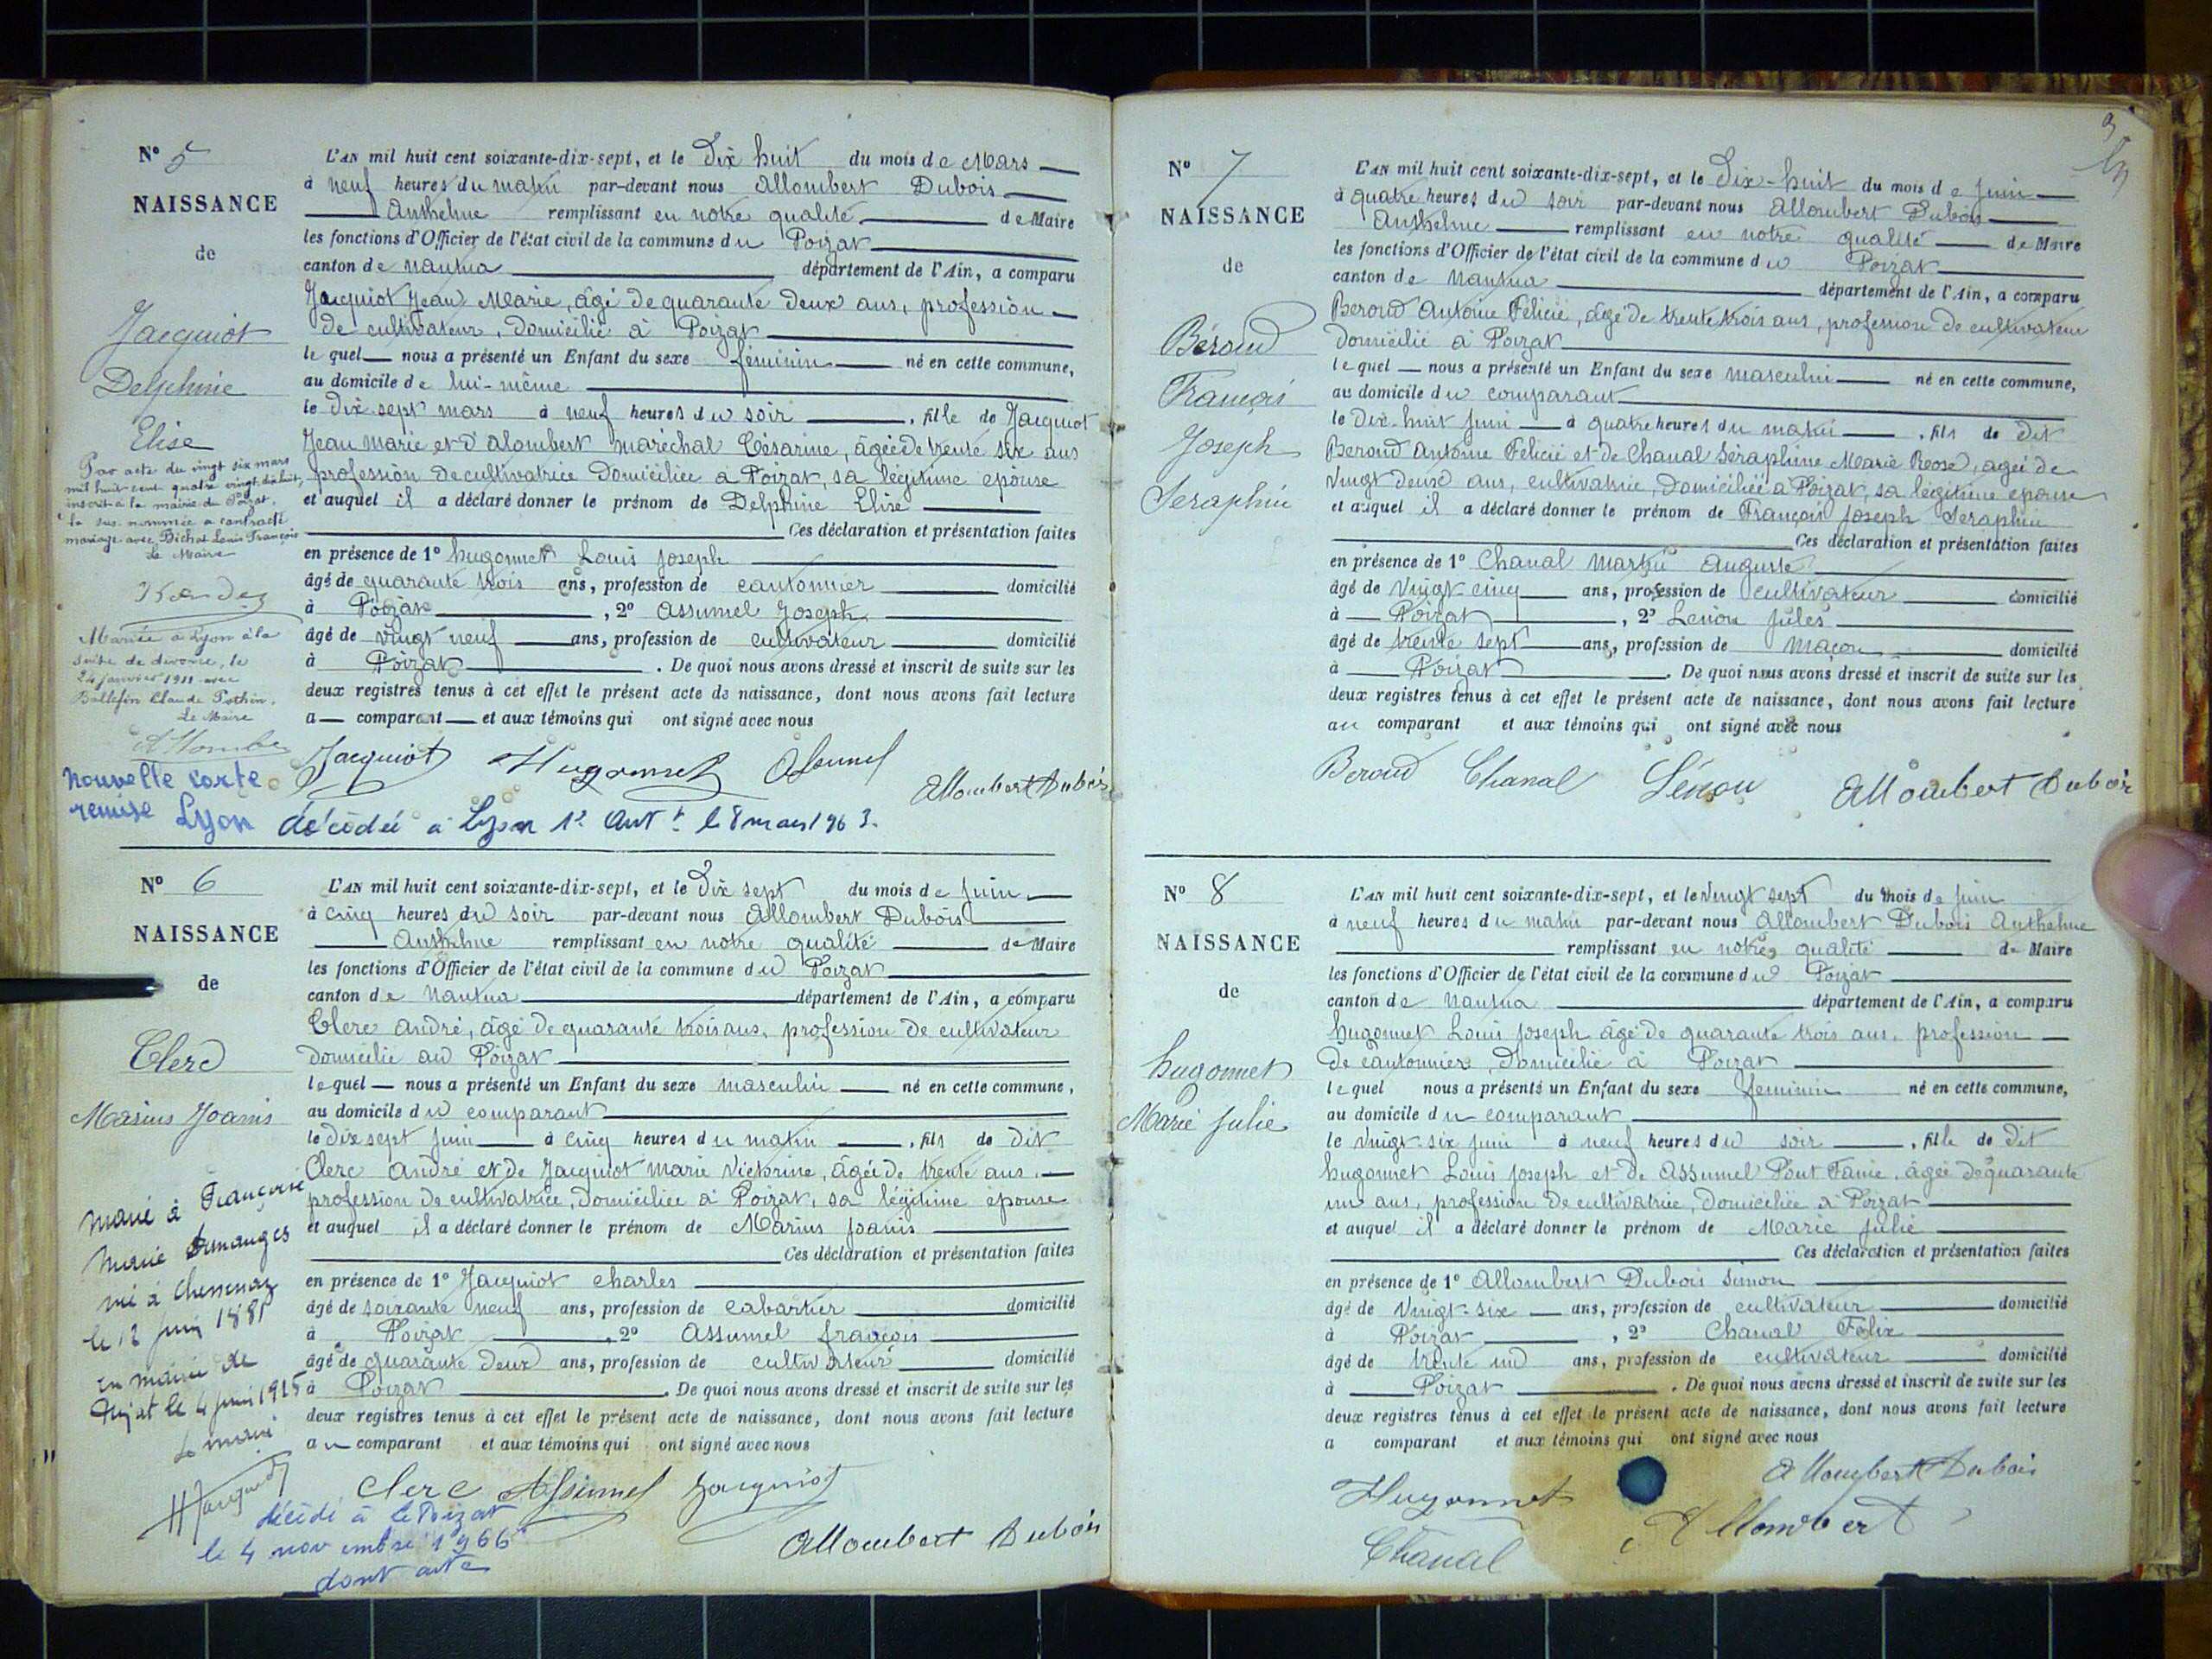 N° 5
NAISSANCE
de
Jacquiot
Delphine
Elise
Par acte du vingt six mars
mil huit cent quatre vingt dix huit,
inscrit à la mairie du Poizat,
la sus nommée a contracté
mariage avec Bichat Louis François
Le Maire
Mariée à Lyon à la
suite de divorce, le
24 janvier 1911 avec
Ballefin Claude Pothin.
Le Maire
Allombe
Nouvelle carte
remise Lyon
L'AN mil huit cent soixante-dix-sept, et le Dix huit du mois de Mars
à neuf heures du matin par-devant nous Allombert Dubois
Anthelme remplissant en notre qualité de Maire
les fonctions d'Officier de l'état civil de la commune du Poizat
canton de Nantua département de l'Ain, a comparu
Jacquiot Jean Marie, âgé de quarante deux ans, profession
de cultivateur, domicilié à Poizat
le quel nous a présenté un Enfant du sexe féminin né en cette commune,
au domicile de lui-même
le dix sept mars à neuf heures du soir, fille de Jacquiot
Jean Marie et d'Alombert Maréchal Césarine, âgée de trente six ans
profession de cultivatrice domiciliée à Poizat, sa légitime épouse
et auquel il a déclaré donner le prénom de Delphine Elise
Ces déclaration et présentation faites
en présence de 1° hugonnet Louis Joseph
âgé de quarante trois ans, profession de cantonnier domicilié
à Poizat, 2° Assumel Joseph
âgé de vingt neuf ans, profession de cultivateur domicilié
à Poizat. De quoi nous avons dressé et inscrit de suite sur les
deux registres tenus à cet effet le présent acte de naissance, dont nous avons fait lecture
a comparant et aux témoins qui ont signé avec nous
Jacquiot Hugonnet Assumel Allombert Dubois
décédée à Lyon 1er Arrt le 8 mars 1963.
N° 6
NAISSANCE
de
Clerc
Marius Joanis
Marié à Françoise
Marie
née à
le 12 juin 1881
en mairie de
le 4 juin 1925
Le maire
L'AN mil huit cent soixante-dix-sept, et le Dix sept du mois de Juin
à cinq heures du soir par-devant nous Allombert Dubois
Anthelme remplissant en notre qualité de Maire
les fonctions d'Officier de l'état civil de la commune du Poizat
canton de Nantua département de l'Ain, a comparu
Clerc André, âgé de quarante trois ans, profession de cultivateur
domicilié au Poizat
le quel nous a présenté un Enfant du sexe masculin né en cette commune,
au domicile du comparant
le dix sept Juin à cinq heures du matin, fils de dit
Clerc André et de Jacquiot Marie Victorine, âgée de trente ans,
profession de cultivatrice, domiciliée à Poizat, sa légitime épouse
et auquel il a déclaré donner le prénom de Marius Joanis
Ces déclaration et présentation faites
en présence de 1° Jacquiot Charles
âgé de soixante neuf ans, profession de cabartier domicilié
à Poizat, 2° Assumel françois
âgé de quarante deux ans, profession de cultivateur domicilié
à Poizat. De quoi nous avons dressé et inscrit de suite sur les
deux registres tenus à cet effet le présent acte de naissance, dont nous avons fait lecture
au comparant et aux témoins qui ont signé avec nous
Clerc Assumel Jacquiot
Allombert Dubois
décédé à le Poizat
le 4 novembre 1966
dont acte
3
N° 7
NAISSANCE
de
Béroud
François
Joseph
Seraphin
L'AN mil huit cent soixante-dix-sept, et le Dix-huit du mois de Juin
à quatre heures du soir par-devant nous Allombert Dubois
Anthelme remplissant en notre qualité de Maire
les fonctions d'Officier de l'état civil de la commune du Poizat
canton de Nantua département de l'Ain, a comparu
Beroud Antoine Félicie, âgé de trente trois ans, profession de cultivateur
domicilié à Poizat
le quel nous a présenté un Enfant du sexe masculin né en cette commune,
au domicile du comparant
le Dix-huit Juin à quatre heures du matin, fils de dit
Beroud Antoine Félicie et de Chanal Séraphine Marie Reose, agée de
Vingt deux ans, cultivatrice, domiciliée à Poizat, sa légitime épouse
et auquel il a déclaré donner le prénom de François Joseph Seraphin
Ces déclaration et présentation faites
en présence de 1° Chanal Martin Auguste
âgé de vingt cinq ans, profession de cultivateur domicilié
à Poizat, 2° Lenou Jules
âgé de trente sept ans, profession de maçon domicilié
à Poizat. De quoi nous avons dressé et inscrit de suite sur les
deux registres tenus à cet effet le présent acte de naissance, dont nous avons fait lecture
au comparant et aux témoins qui ont signé avec nous
Beroud Chanal Lénou Allombert Dubois
N° 8
NAISSANCE
de
hugonnet
Marie Julie
L'AN mil huit cent soixante-dix-sept, et le vingt sept du mois de Juin
à neuf heures du matin par-devant nous Allombert Dubois Anthelme
remplissant en notre qualité de Maire
les fonctions d'Officier de l'état civil de la commune du Poizat
canton de Nantua département de l'Ain, a comparu
hugonnet Louis Joseph âgé de quarante trois ans, profession
de cantonnier, domicilié à Poizat
le quel nous a présenté un Enfant du sexe feminin né en cette commune,
au domicile du comparant
le vingt-six juin à neuf heures du soir, fille de dit
hugonnet Louis Joseph et de Assumel Pout Fanie, âgée de quarante
un ans, profession de cultivatrice, domiciliée à Poizat
et auquel il a déclaré donner le prénom de Marie Julie
Ces déclaration et présentation faites
en présence de 1° Allombert Dubois Simon
âgé de vingt-six ans, profession de cultivateur domicilié
à Poizat, 2° Chanal Félix
âgé de trente un ans, profession de cultivateur domicilié
à Poizat. De quoi nous avons dressé et inscrit de suite sur les
deux registres tenus à cet effet le présent acte de naissance, dont nous avons fait lecture
a comparant et aux témoins qui ont signé avec nous
Allombert Dubois
Hugonnet
Allombert
Chanal